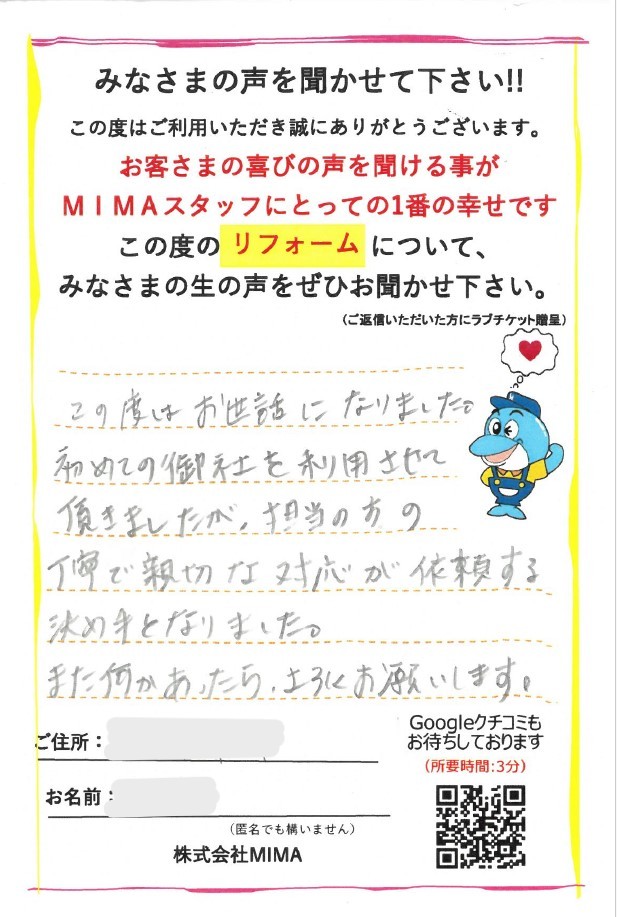 みなさまの声を聞かせて下さい!!
この度はご利用いただき誠にありがとうございます。
お客さまの喜びの声を聞ける事が
MIMAスタッフにとっての1番の幸せです
この度のリフォームについて、
みなさまの生の声をぜひお聞かせ下さい。
(ご返信いただいた方にラブチケット贈呈)
この度はお世話になりました。
初めての御社を利用させて
頂きましたが、担当の方の
丁寧で親切な対応が依頼する
決め手となりました。
また何かあったら、お願いします。
ご住所：
Googleクチコミも
お待ちしております
(所要時間:3分)
お名前：
(匿名でも構いません)
株式会社MIMA